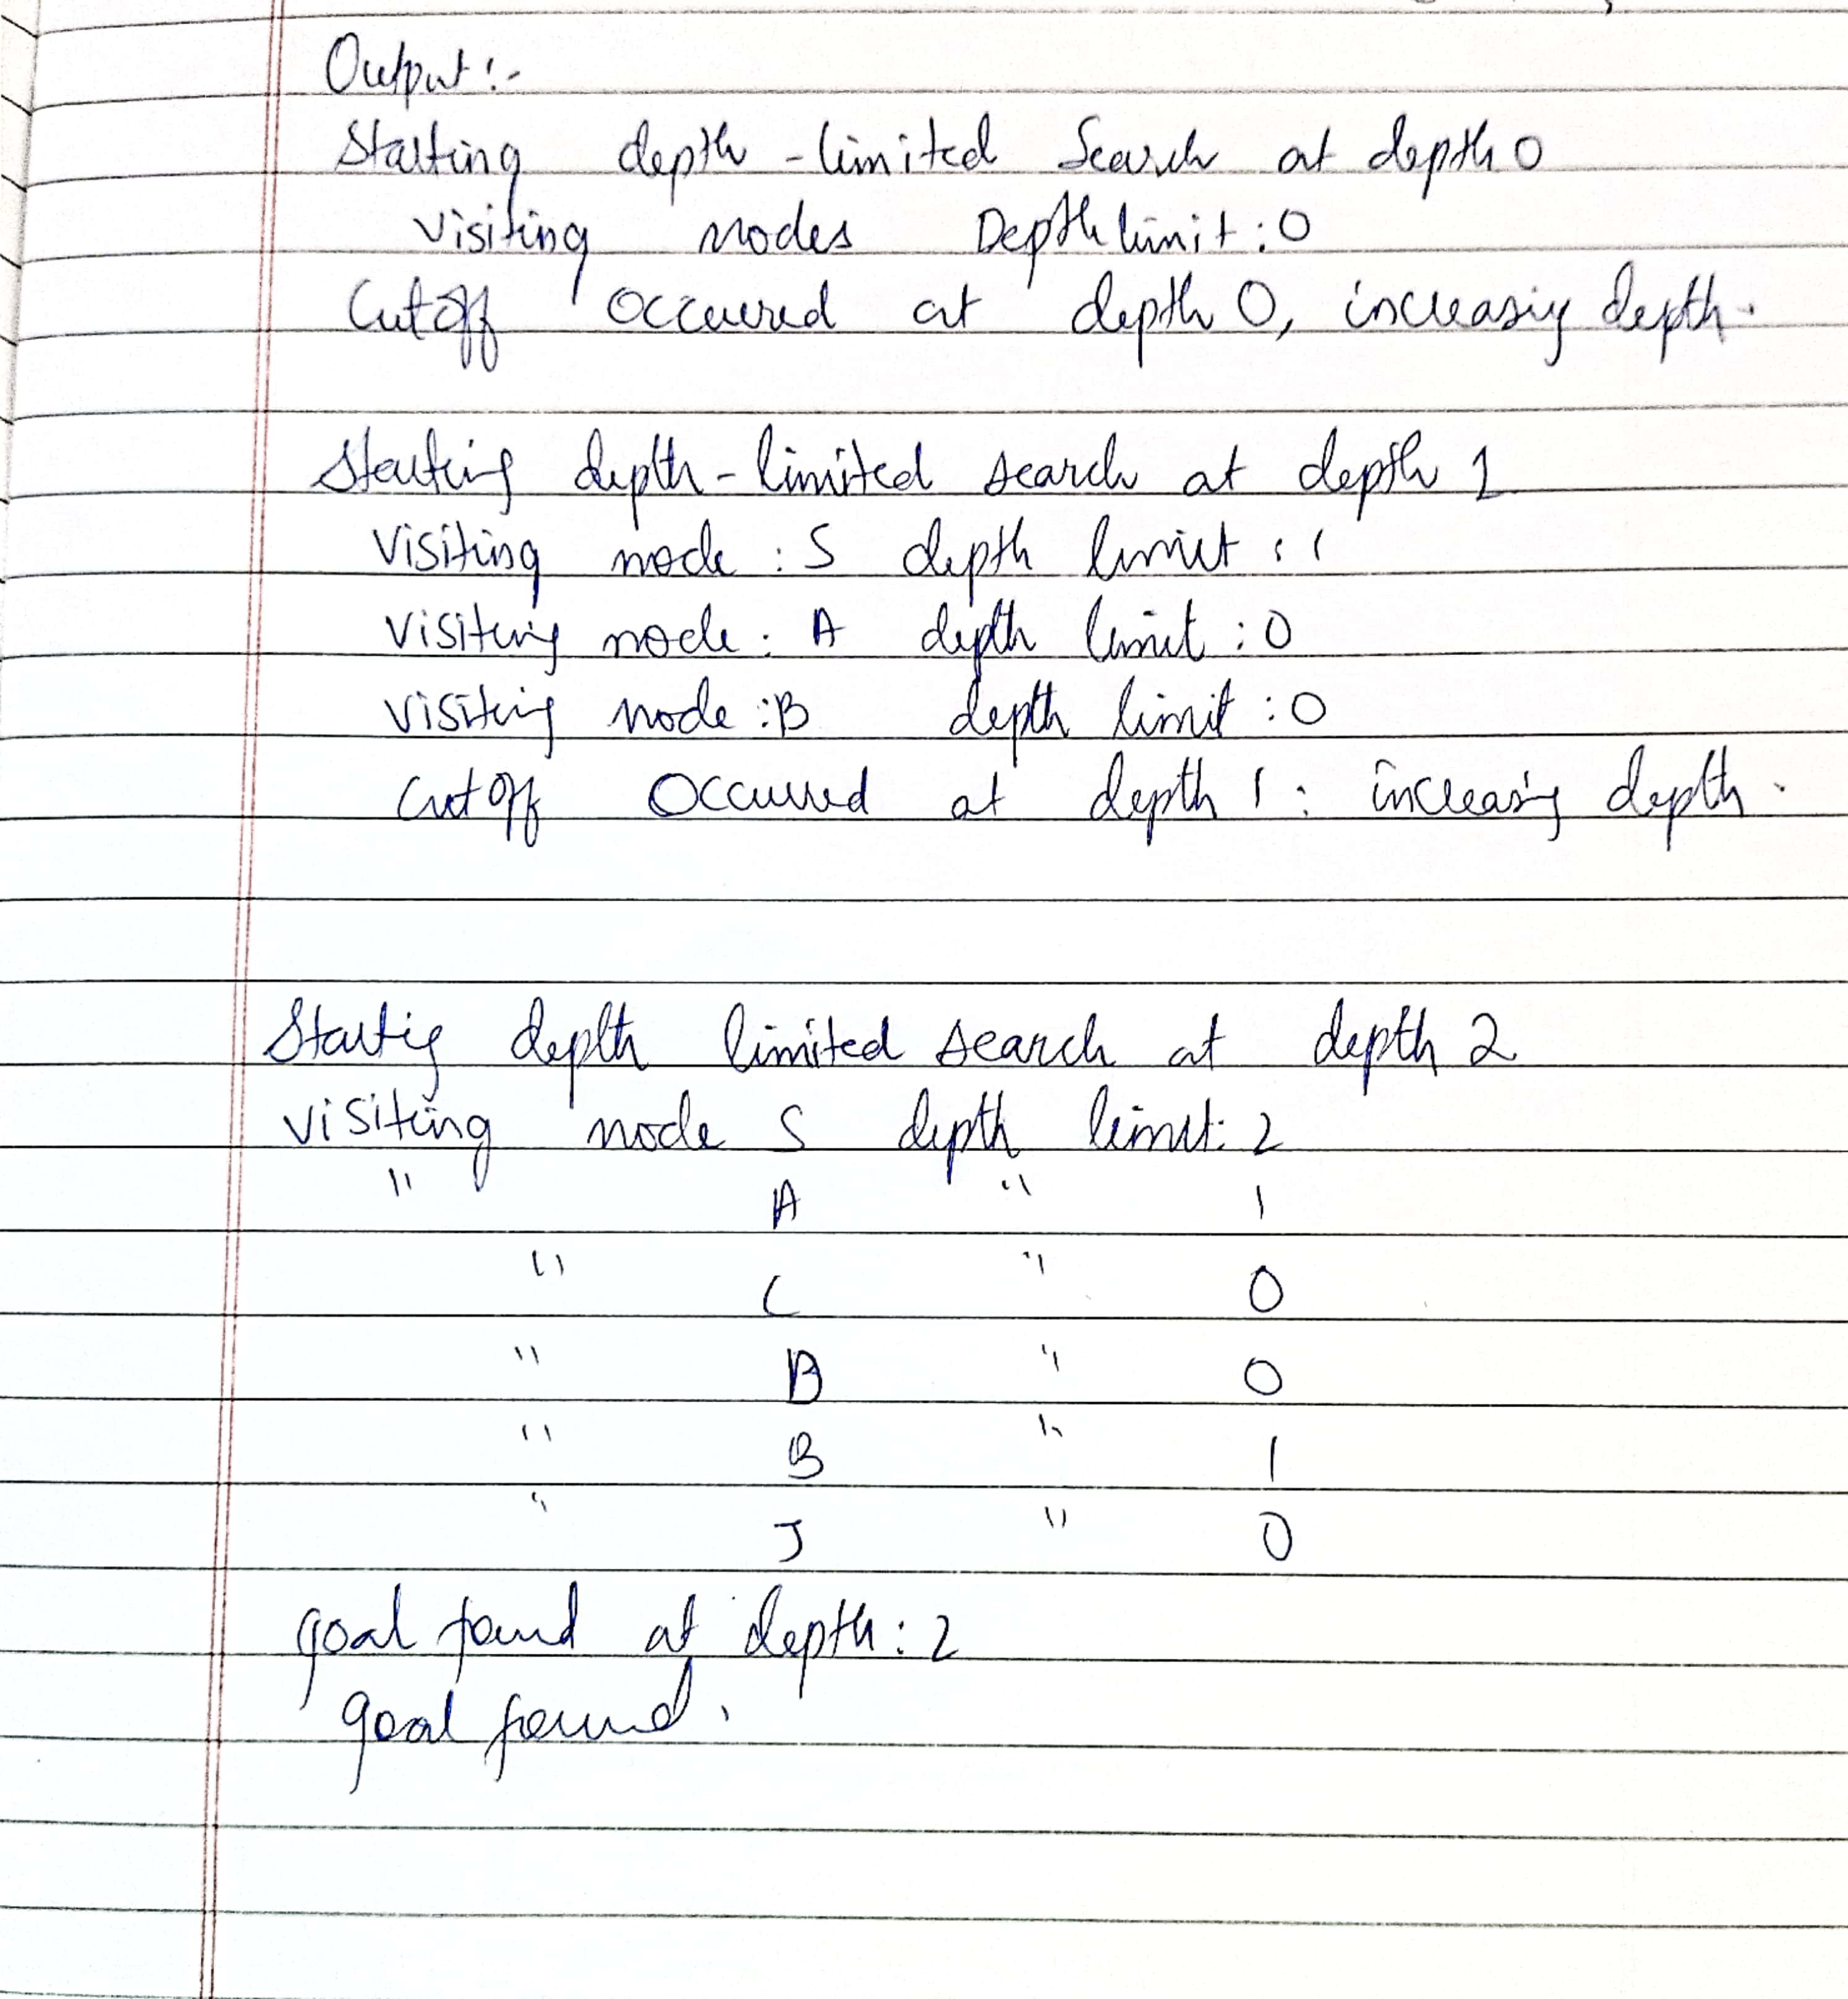 Output :-
Starting depth - limited Search at depth 0
Visiting nodes Depth limit : 0
Cutoff Occured at depth 0, increasing depth.
Starting depth - limited search at depth 1
Visiting node : S depth limit : 1
Visiting node : A depth limit : 0
Visiting node : B depth limit : 0
Cutoff Occurred at depth 1 : increasing depth.
Starting depth limited search at depth 2
Visiting node S depth limit: 2
" A " 1
" C " 0
" B " 0
" B " 1
" J " 0
goal found at depth : 2
goal found.